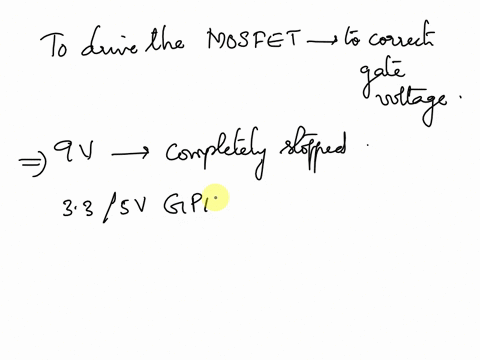 To drive the MOSFET → to correct
gate
voltage.
⇒ 9V → completely stopped.
3.3/5V GPI